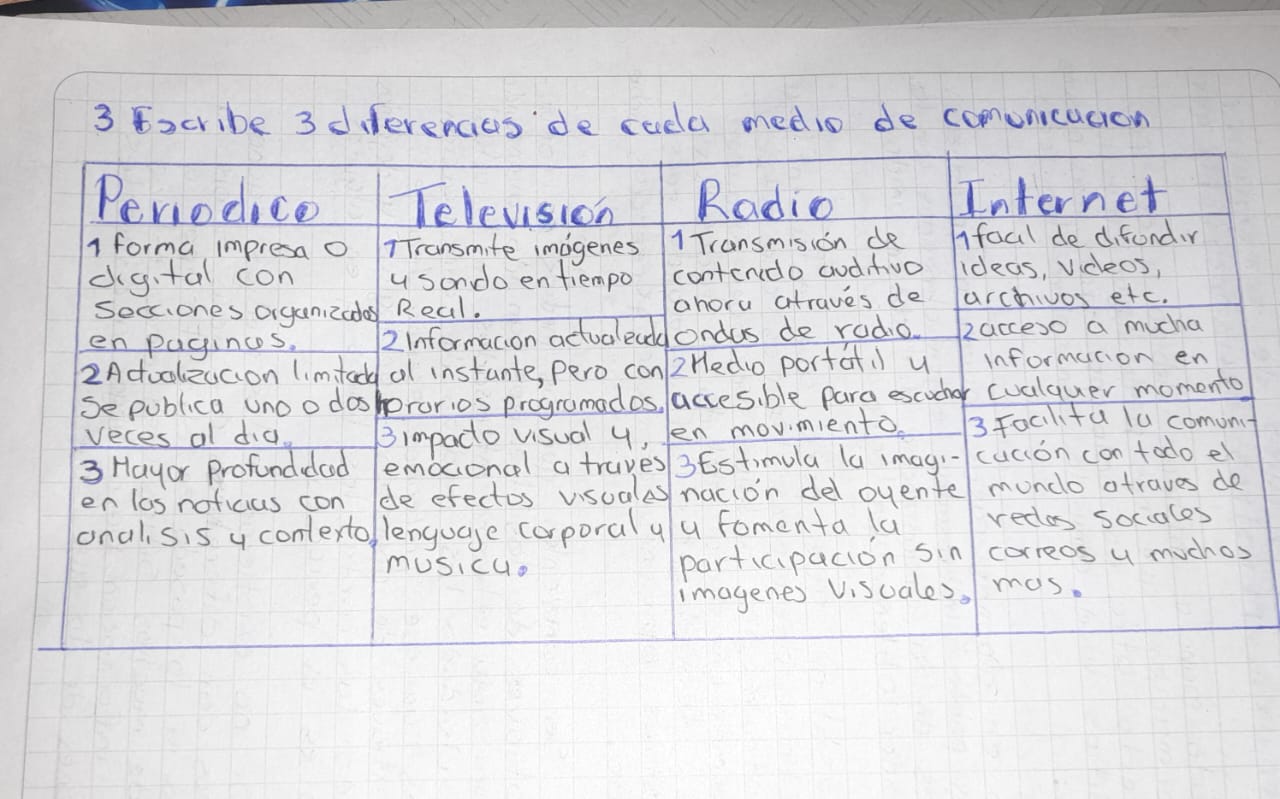 3 Escribe 3 diferencias de cada medio de comunicacion
Periodico
1 forma impresa o
digital con
Secciones organizadas
en paginas.
2 Actualizacion limitada
Se publica uno o dos
veces al dia.
3 Mayor profundidad
en las noticias con
analisis y contexto.
Televisión
1 Transmite imágenes
y sonido en tiempo
Real.
2 Informacion
al instante, pero con
horarios programados.
3 impacto visual y,
emocional a través
de efectos visuales
lenguaje corporal y
musica.
Radio
1 Transmisión de
contenido auditivo
ahora através de
ondas de radio.
2 Medio portátil y
accesible para escuchar
en movimiento.
3 Estimula la imagi-
nación del oyente
y fomenta la
participación sin
imagenes visuales.
Internet
1 facil de difundir
ideas, videos,
archivos etc.
2 acceso a mucha
informacion en
cualquer momento
3 Facilita la comuni-
cación con todo el
mundo atraves de
redes sociales
correos y muchos
mas.